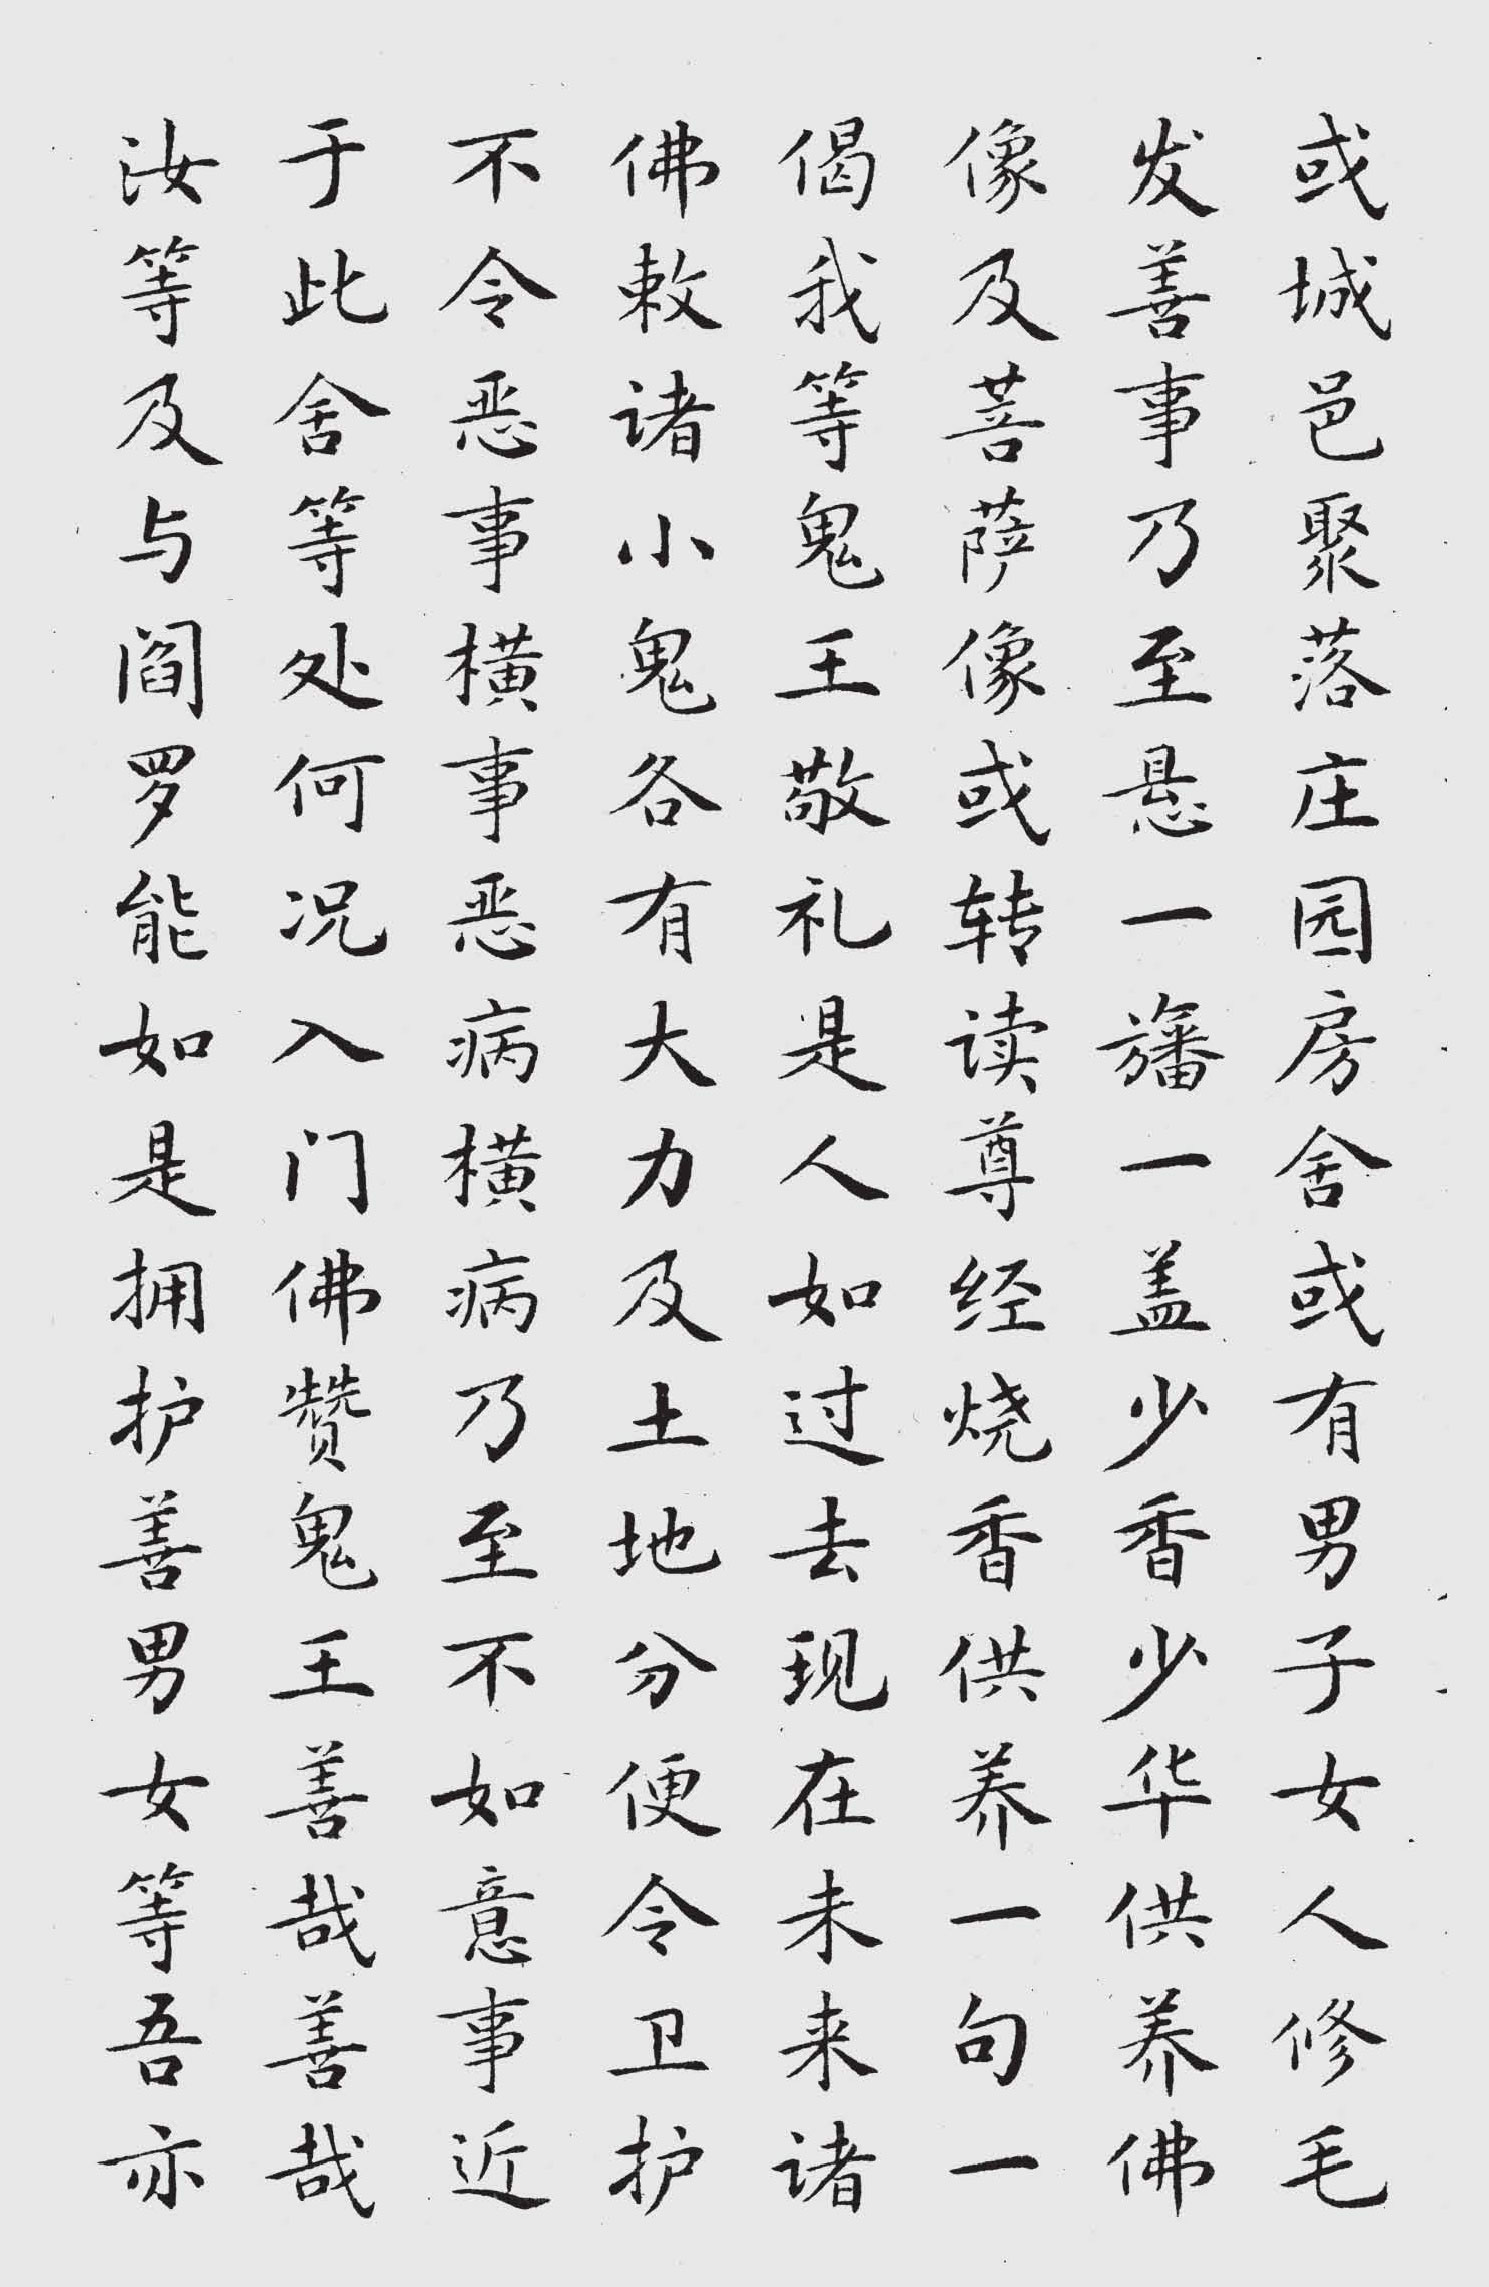 或城邑聚落庄园房舍或有男子女人修毛
发善事乃至悬一旛一盖少香少华供养佛
像及菩萨像或转读尊经烧香供养一句一
偈我等鬼王敬礼是人如过去现在未来诸
佛敕诸小鬼各有大力及土地分便令卫护
不令恶事横事恶病横病乃至不如意事近
于此舍等处何况入门佛赞鬼王善哉善哉
汝等及与阎罗能如是拥护善男女等吾亦